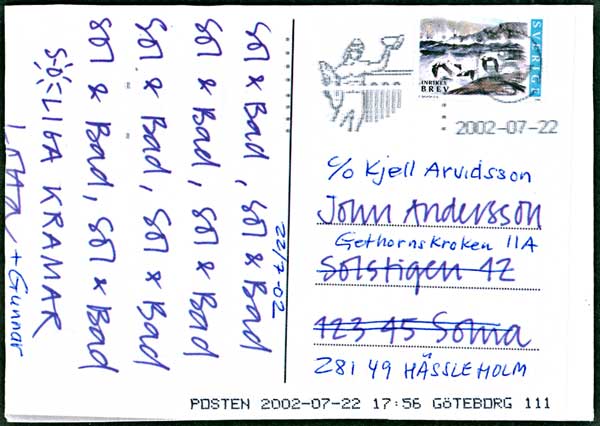 22/7-02
Sol & Bad, Sol & Bad
Sol & Bad, Sol & Bad
Sol & Bad, Sol & Bad
Sol & Bad, Sol & Bad
S-O-LIGA KRAMAR
+ Gunnar
SVERIGE
INRIKES
BREV
2002-07-22
c/o Kjell Arvidsson
John Andersson
Gethornskroken 11A
Solstigen 42
123 45 Solna
281 49 HÄSSLEHOLM
POSTEN 2002-07-22 17:56 GÖTEBORG 111